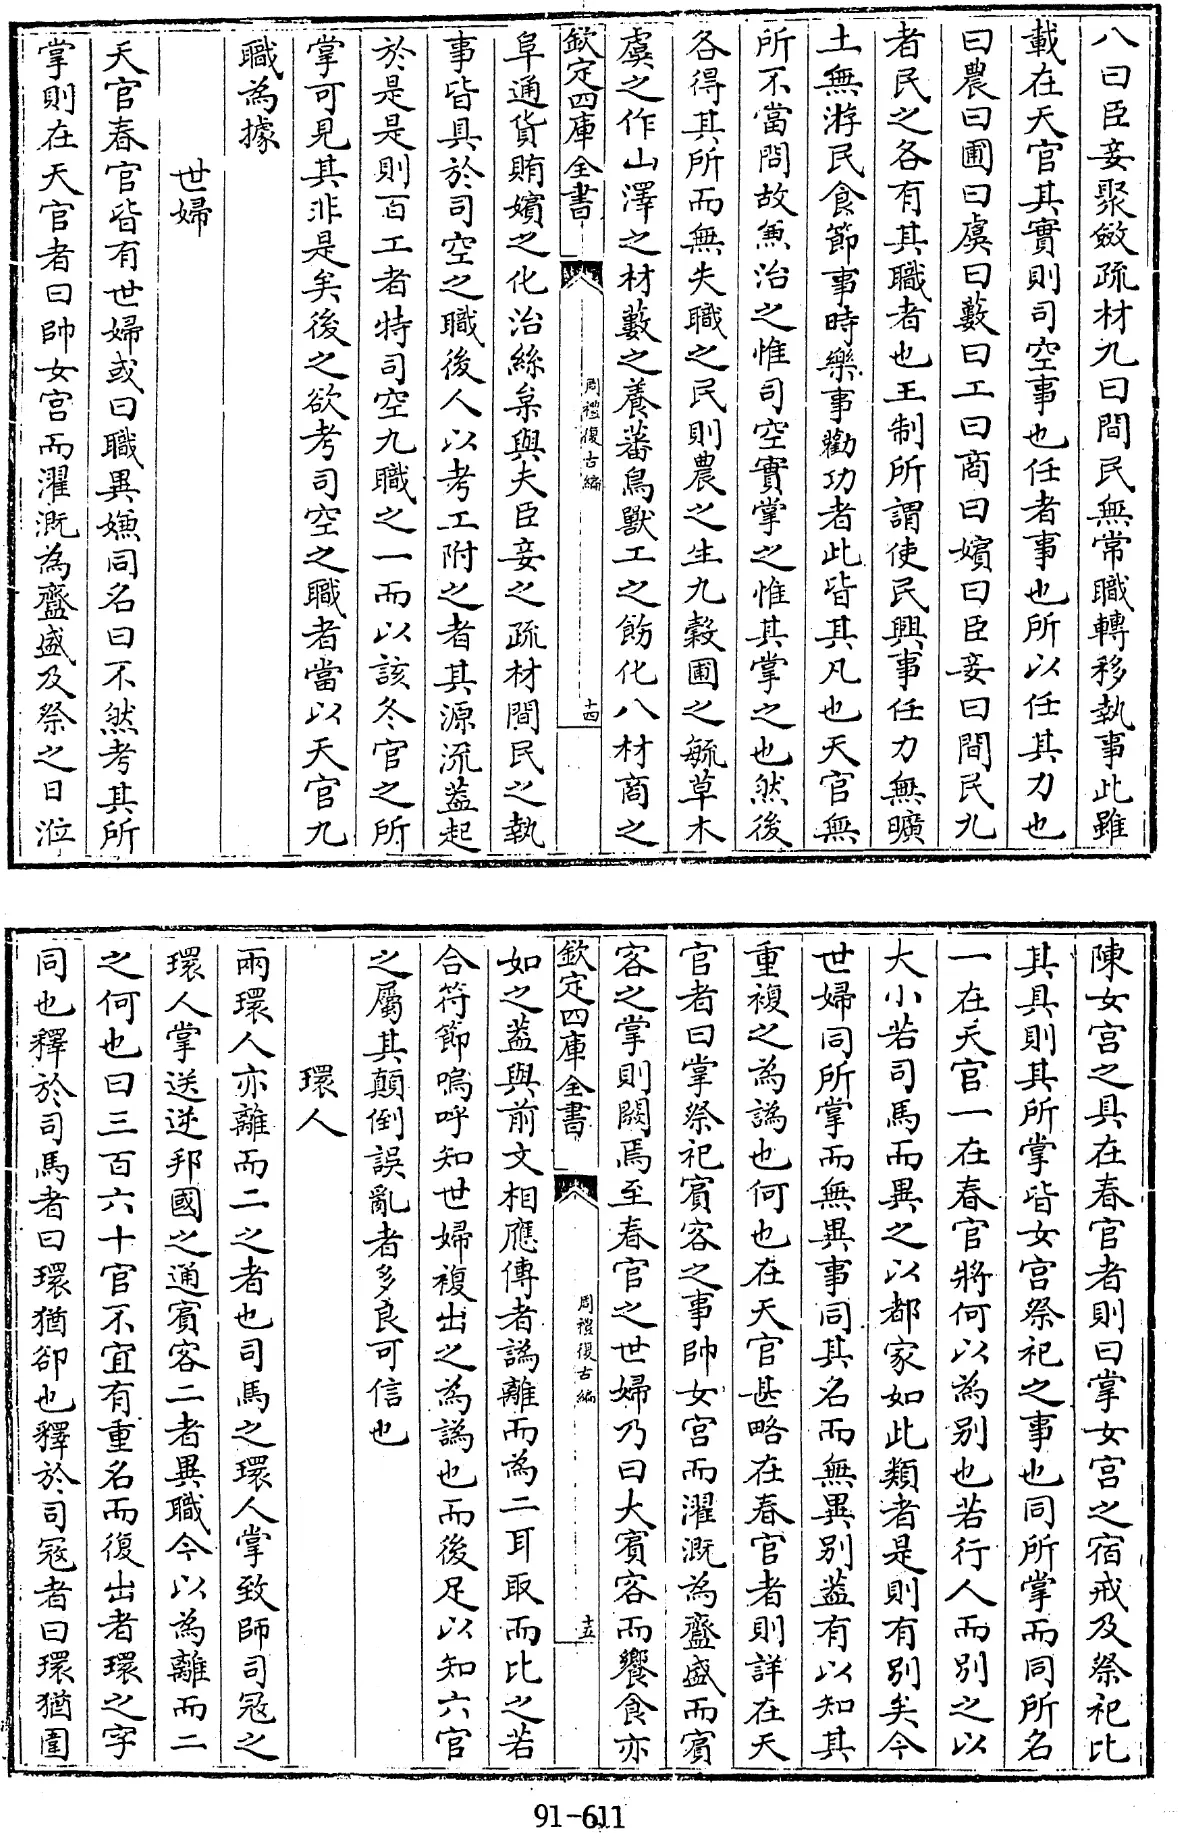 八曰臣妾聚斂疏材九曰間民無常職轉移執事此雖
載在天官其實則司空事也任者事也所以任其力也
曰農曰圃曰虞曰藪曰工曰商曰嬪曰臣妾曰間民九
者民之各有其職者也王制所謂使民興事任力無曠
土無游民食節事時樂事勸功者此皆其凡也天官無
所不當問故兼治之惟司空實掌之惟其掌之也然後
各得其所而無失職之民則農之生九穀圃之毓草木
虞之作山澤之材藪之養蕃鳥獸工之飭化八材商之
欽定四庫全書
周禮復古編
十四
阜通貨賄嬪之化治絲枲與夫臣妾之疏材間民之執
事皆具於司空之職後人以考工附之者其源流蓋起
於是是則百工者特司空九職之一而以該冬官之所
掌可見其非是矣後之欲考司空之職者當以天官九
職為據
世婦
天官春官皆有世婦或曰職異嫌同名曰不然考其所
掌則在天官者曰帥女宮而濯溉為齍盛及祭之日涖
陳女宮之具在春官者則曰掌女宮之宿戒及祭祀比
其具則其所掌皆女宮祭祀之事也同所掌而同所名
一在天官一在春官將何以為別也若行人而別之以
大小若司馬而異之以都家如此類者是則有別矣今
世婦同所掌而無異事同其名而無異別蓋有以知其
重複之為譌也何也在天官甚略在春官者則詳在天
官者曰掌祭祀賓客之事帥女宮而濯溉為齍盛而賓
客之掌則闕焉至春官之世婦乃曰大賓客而饗食亦
欽定四庫全書
周禮復古編
十五
如之蓋與前文相應傳者譌離而為二耳取而比之若
合符節嗚呼知世婦複出之為譌也而後足以知六官
之屬其顛倒誤亂者多良可信也
環人
兩環人亦離而二之者也司馬之環人掌致師司冦之
環人掌送逆邦國之通賓客二者異職今以為離而二
之何也曰三百六十官不宜有重名而復出者環之字
同也釋於司馬者曰環猶卻也釋於司冦者曰環猶圍
91-611